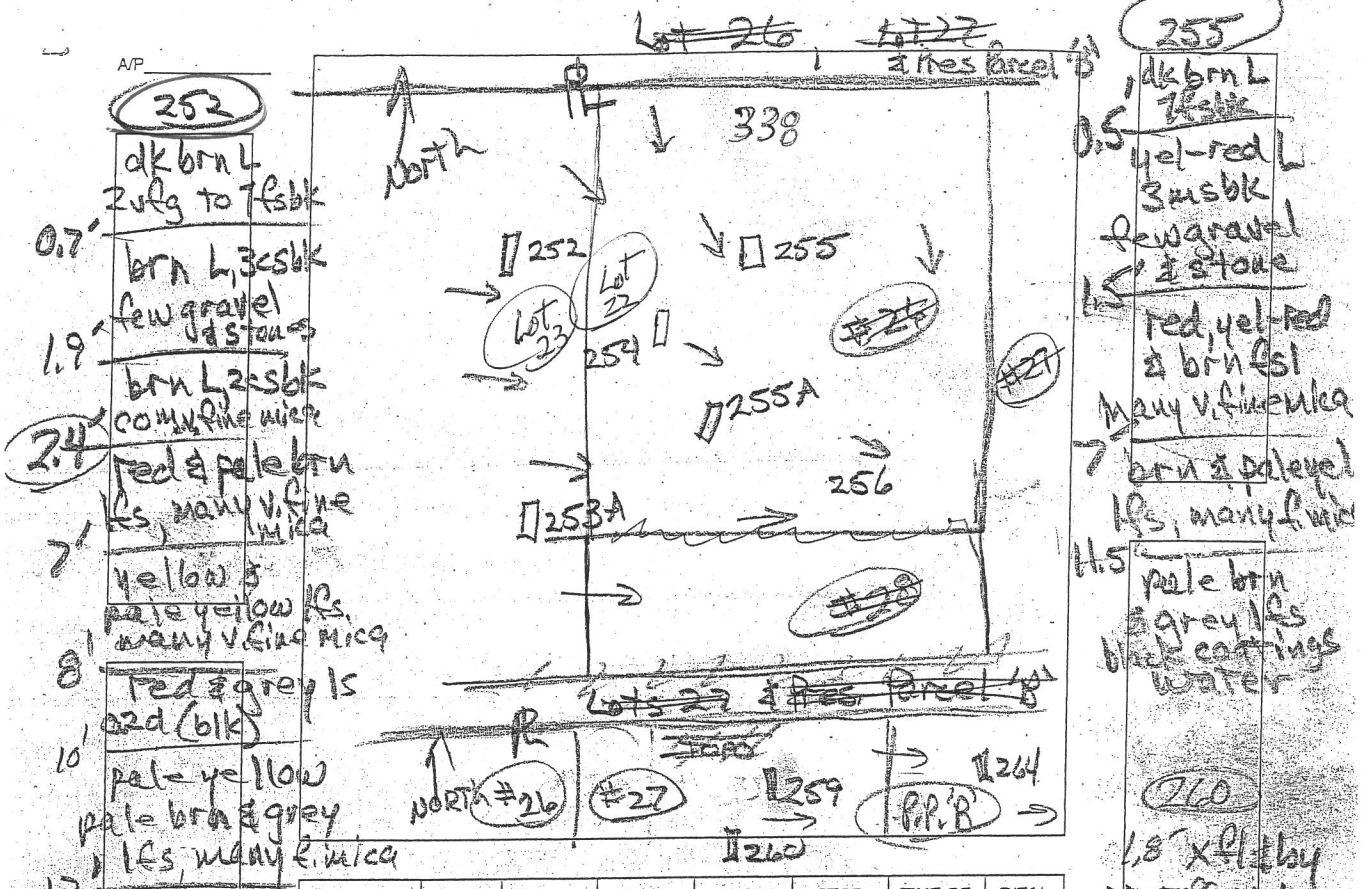 A/P
252
dk brn L
2vfg to 1fsbk
0.7'
brn L, 3csbk
few gravel
& stones
1.9'
brn L, 2csbk
com v. fine mica
2.4'
red & pale brn
lfs, many v. fine
mica
7'
yellow &
pale yellow lfs,
many v. fine mica
8'
red & grey ls
(blk)
10'
pale yellow
pale brn & grey
lfs, many f. mica
Lot 26
Lot 27
& Pres Parcel 'B'
North
338
252
255
Lot
23
Lot
22
254
#26
#27
255A
256
253A
#28
Lots 27 & Pres. Parcel 'B'
TOPO
NORTH
#26
#27
259
264
P.P. 'B'
260
255
dk brn L
0.5
yel-red L
3msbk
few gravel
& stone
1.5'
red, yel-red
& brn fsl
many v. fine mica
7'
brn & pale yel
lfs, many f. mica
11.5
pale brn
& grey lfs
black coatings
water
260
1.8'